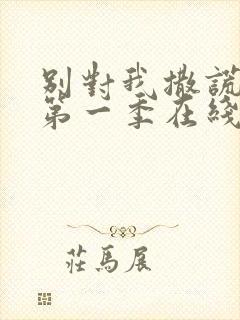 別對我撒謊
第一季在綫
莊馬展